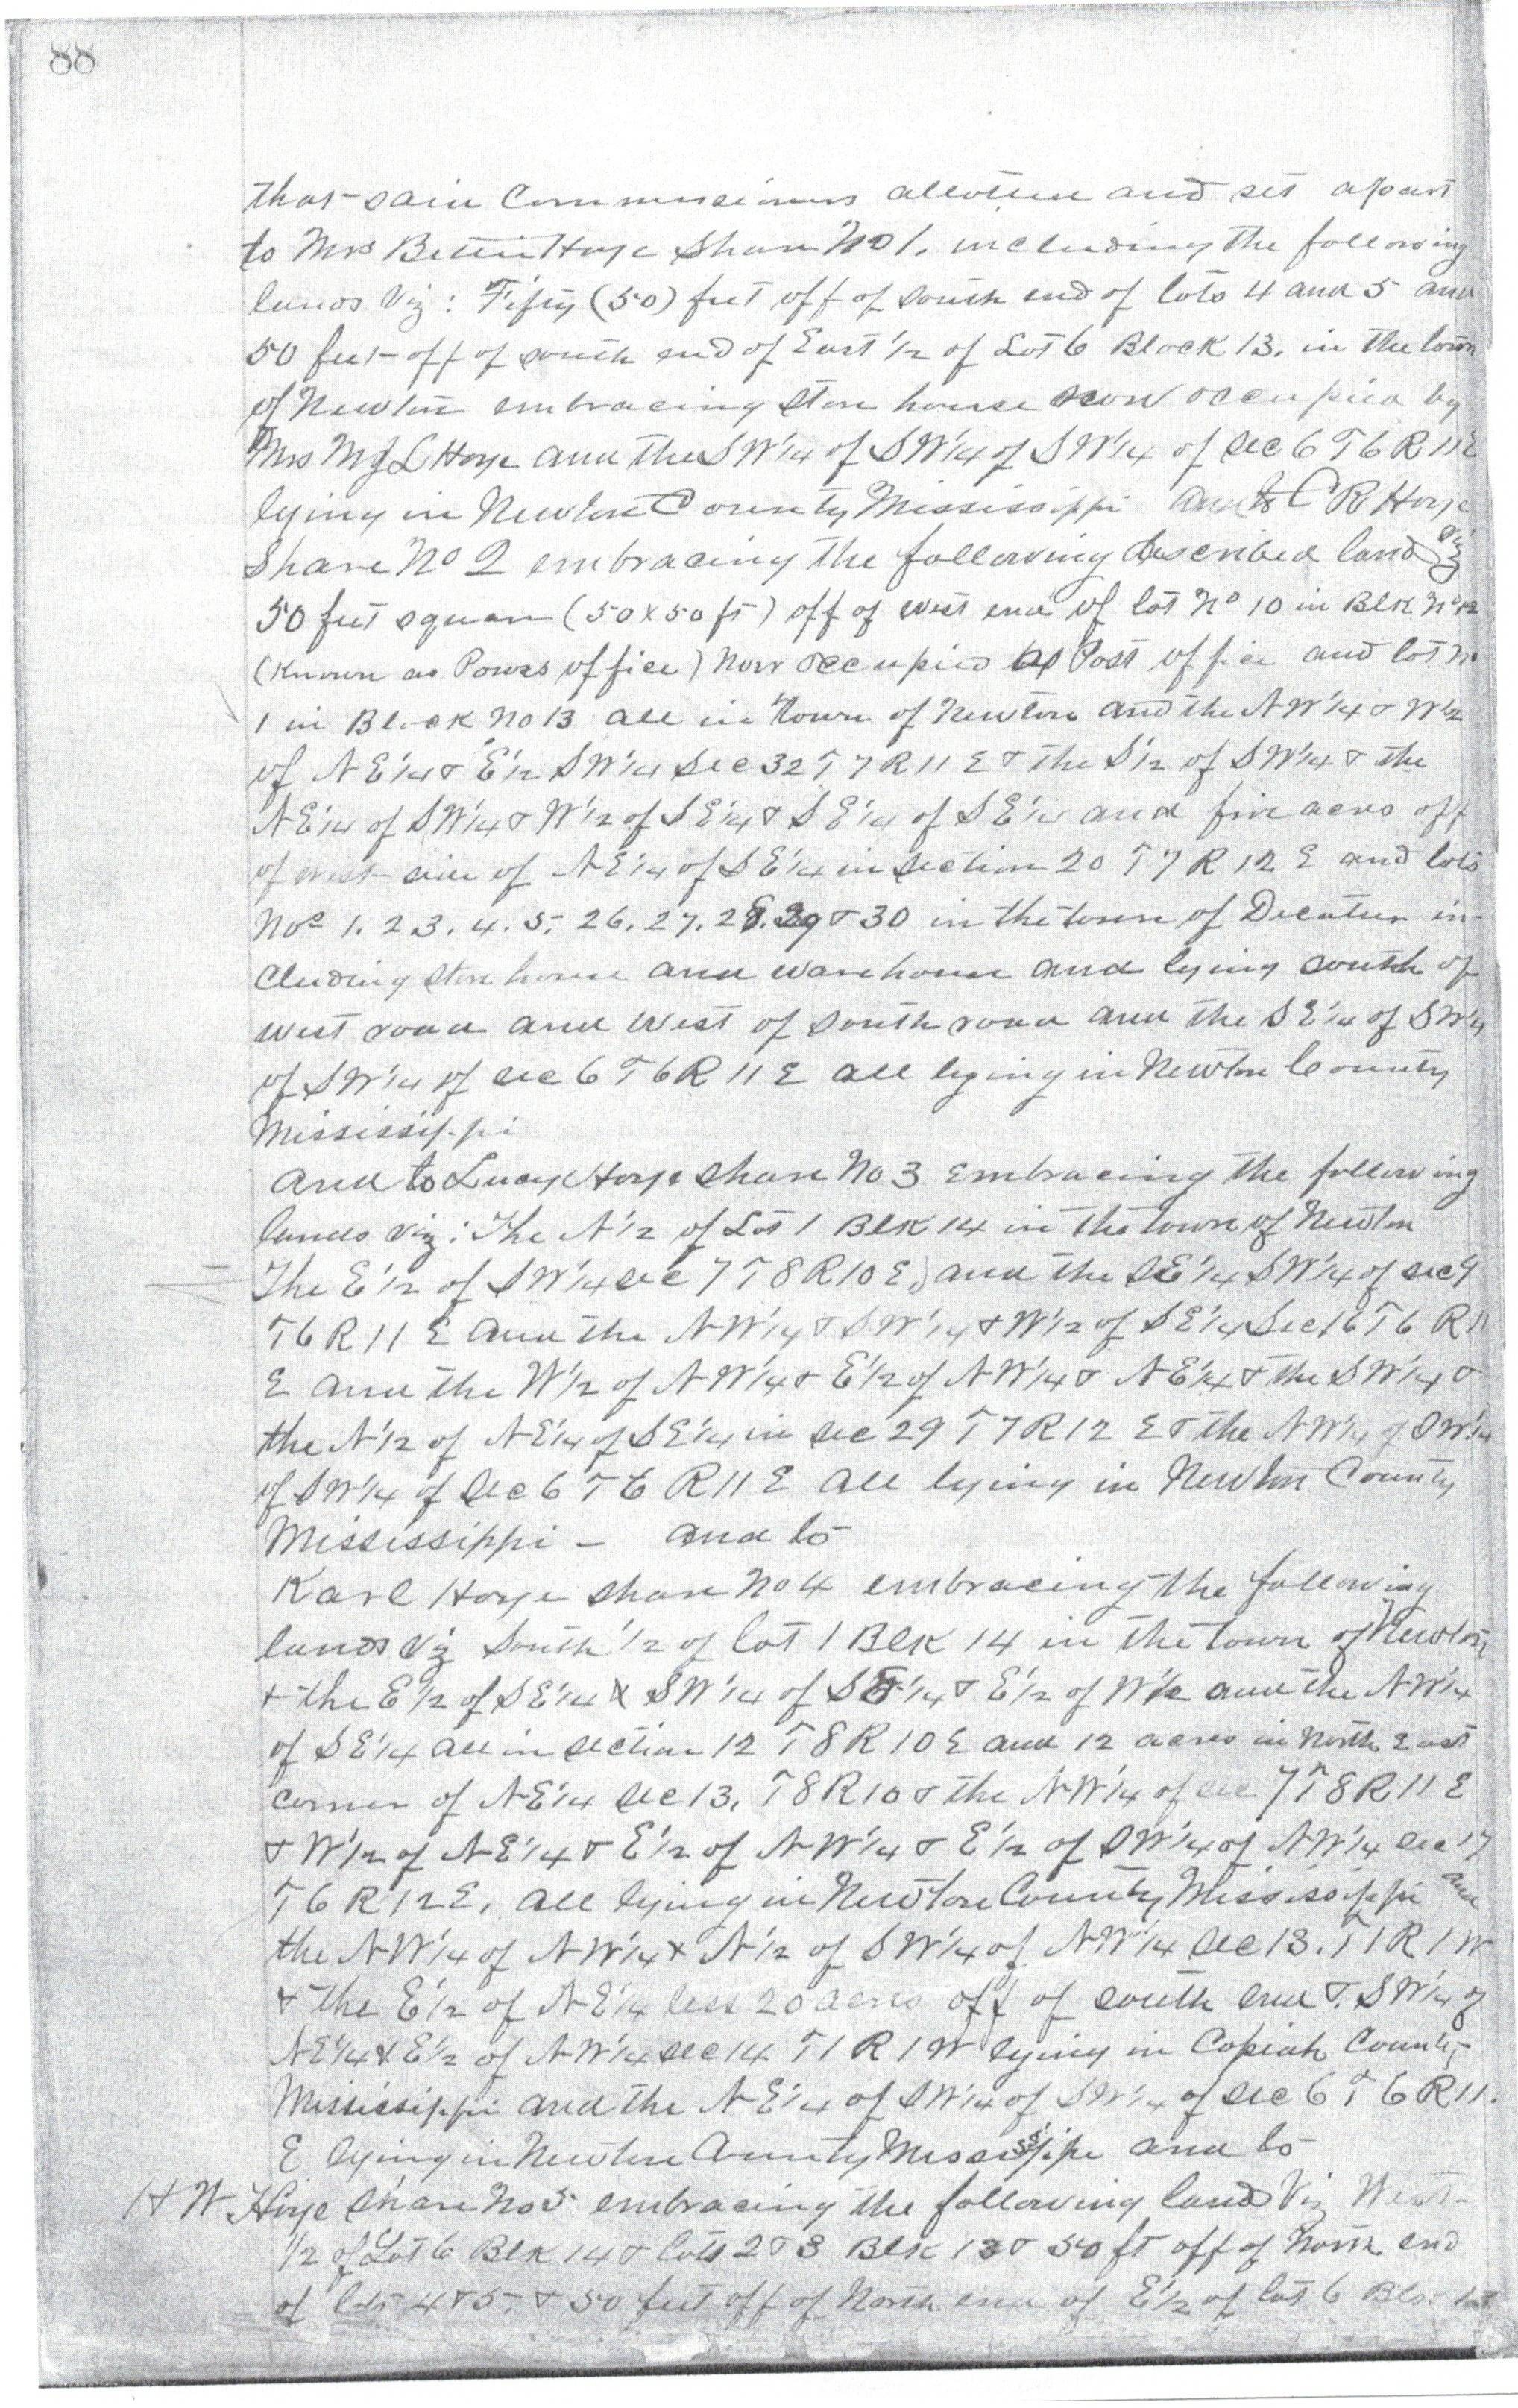 88
that said Commissioners allotted and set apart
to Mrs Bettie Hoye Share No 1. including the following
lands Viz: Fifty (50) feet off of south end of lots 4 and 5 and
50 feet off of south end of East 1/2 of Lot 6 Block 13. in the town
of Newton embracing store house now occupied by
Mrs M J L Hoye and the SW 1/4 of SW 1/4 of SW 1/4 of Sec 6 T 6 R 11 E
lying in Newton County Mississippi and to C R Hoye
Share No 2 embracing the following described land Viz
50 feet square (50 x 50 ft) off of west end of lot No 10 in Blk No 12
(Known as Powes office) now occupied as Post office and lot No
1 in Block No 13 all in town of Newton and the NW 1/4 & W 1/2
of NE 1/4 & E 1/2 SW 1/4 Sec 32 T 7 R 11 E & the S 1/2 of SW 1/4 & the
NE 1/4 of SW 1/4 & W 1/2 of SE 1/4 & SE 1/4 of SE 1/4 and five acres off
of west side of NE 1/4 of SE 1/4 in Section 20 T 7 R 12 E and lots
Nos 1. 2 3. 4. 5. 26. 27. 28. 29 & 30 in the town of Decatur in-
cluding store house and warehouse and lying south of
west road and west of south road and the SE 1/4 of SW 1/4
of SW 1/4 of Sec 6 T 6 R 11 E all lying in Newton County
Mississippi
and to Lucy Hoye share No 3 embracing the following
lands viz: The N 1/2 of Lot 1 Blk 14 in the town of Newton
The E 1/2 of SW 1/4 Sec 7 T 8 R 10 E) and the SE 1/4 SW 1/4 of Sec 9
T 6 R 11 E and the NW 1/4 & SW 1/4 & W 1/2 of SE 1/4 Sec 16 T 6 R 11
E and the W 1/2 of NW 1/4 & E 1/2 of NW 1/4 & NE 1/4 & the SW 1/4 &
the N 1/2 of NE 1/4 of SE 1/4 in Sec 29 T 7 R 12 E & the NW 1/4 of SW 1/4
of SW 1/4 of Sec 6 T 6 R 11 E all lying in Newton County
Mississippi - and to
Karl Hoye share No 4 embracing the following
lands Viz South 1/2 of lot 1 Blk 14 in the town of Newton
& the E 1/2 of SE 1/4 & SW 1/4 of SE 1/4 & E 1/2 of W 1/2 and the NW 1/4
of SE 1/4 all in Section 12 T 8 R 10 E and 12 acres in North East
corner of NE 1/4 Sec 13, T 8 R 10 & the NW 1/4 of Sec 7 T 8 R 11 E
& W 1/2 of NE 1/4 & E 1/2 of NW 1/4 & E 1/2 of SW 1/4 of NW 1/4 Sec 17
T 6 R 12 E, all lying in Newton County Mississippi and
the NW 1/4 of NW 1/4 & N 1/2 of SW 1/4 of NW 1/4 Sec 13. T 1 R 1 W
& the E 1/2 of NE 1/4 less 20 acres off of south end & SW 1/4 of
NE 1/4 & E 1/2 of NW 1/4 Sec 14 T 1 R 1 W lying in Copiah County
Mississippi and the NE 1/4 of SW 1/4 of SW 1/4 of Sec 6 T 6 R 11.
E lying in Newton County Mississippi and to
H W Hoye share No 5 embracing the following lands Viz West
1/2 of Lot 6 Blk 14 & lots 2 & 3 Blk 13 & 50 ft off of North end
of lots 4 & 5. & 50 feet off of North end of E 1/2 of lot 6